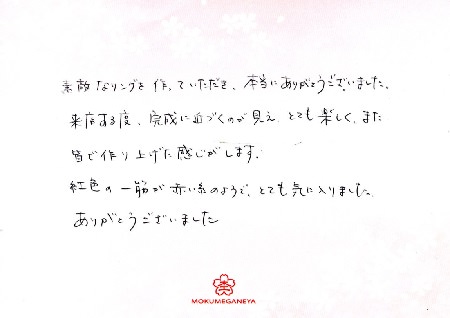 素敵なリングを作っていただき、本当にありがとうございました。
来店する度、完成に近づくのが見え、とても楽しく、また
皆で作り上げた感じがします。
紅色の一筋が赤い糸のようで、とても気に入りました。
ありがとうございました
MOKUMEGANEYA